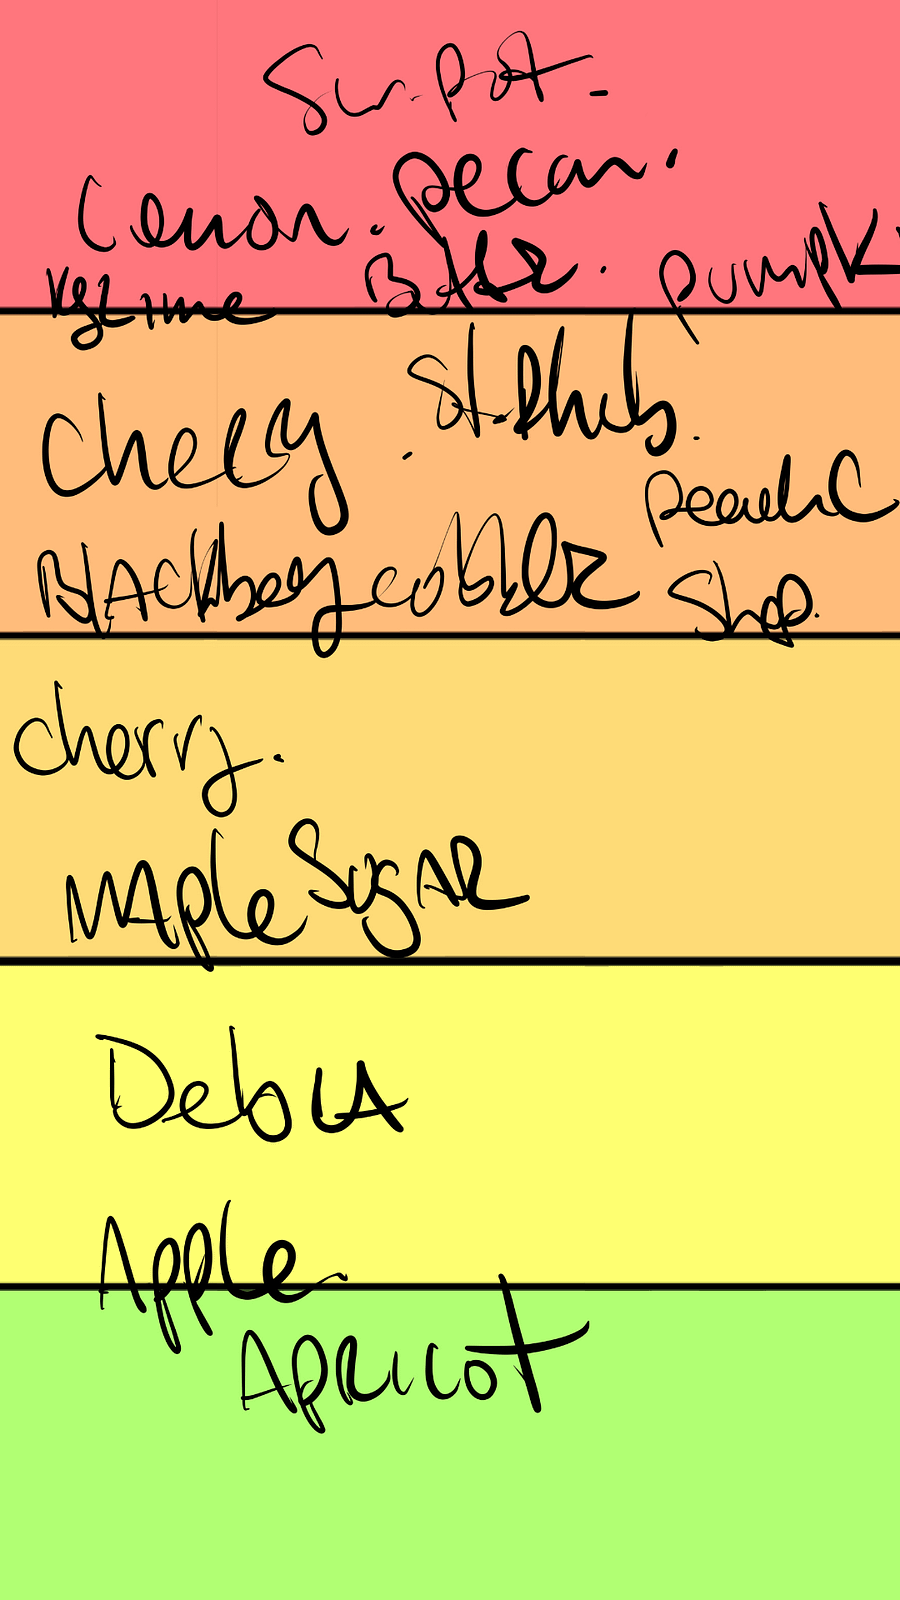 Sw. Pot -
Lemon. Pecan.
Key Lime Butter. Pumpk
Cherry . St. Rhub.
Peach C
Blackberry cobbler Shep.
cherry.
Maple Sugar
Debra
Apple.
Apricot